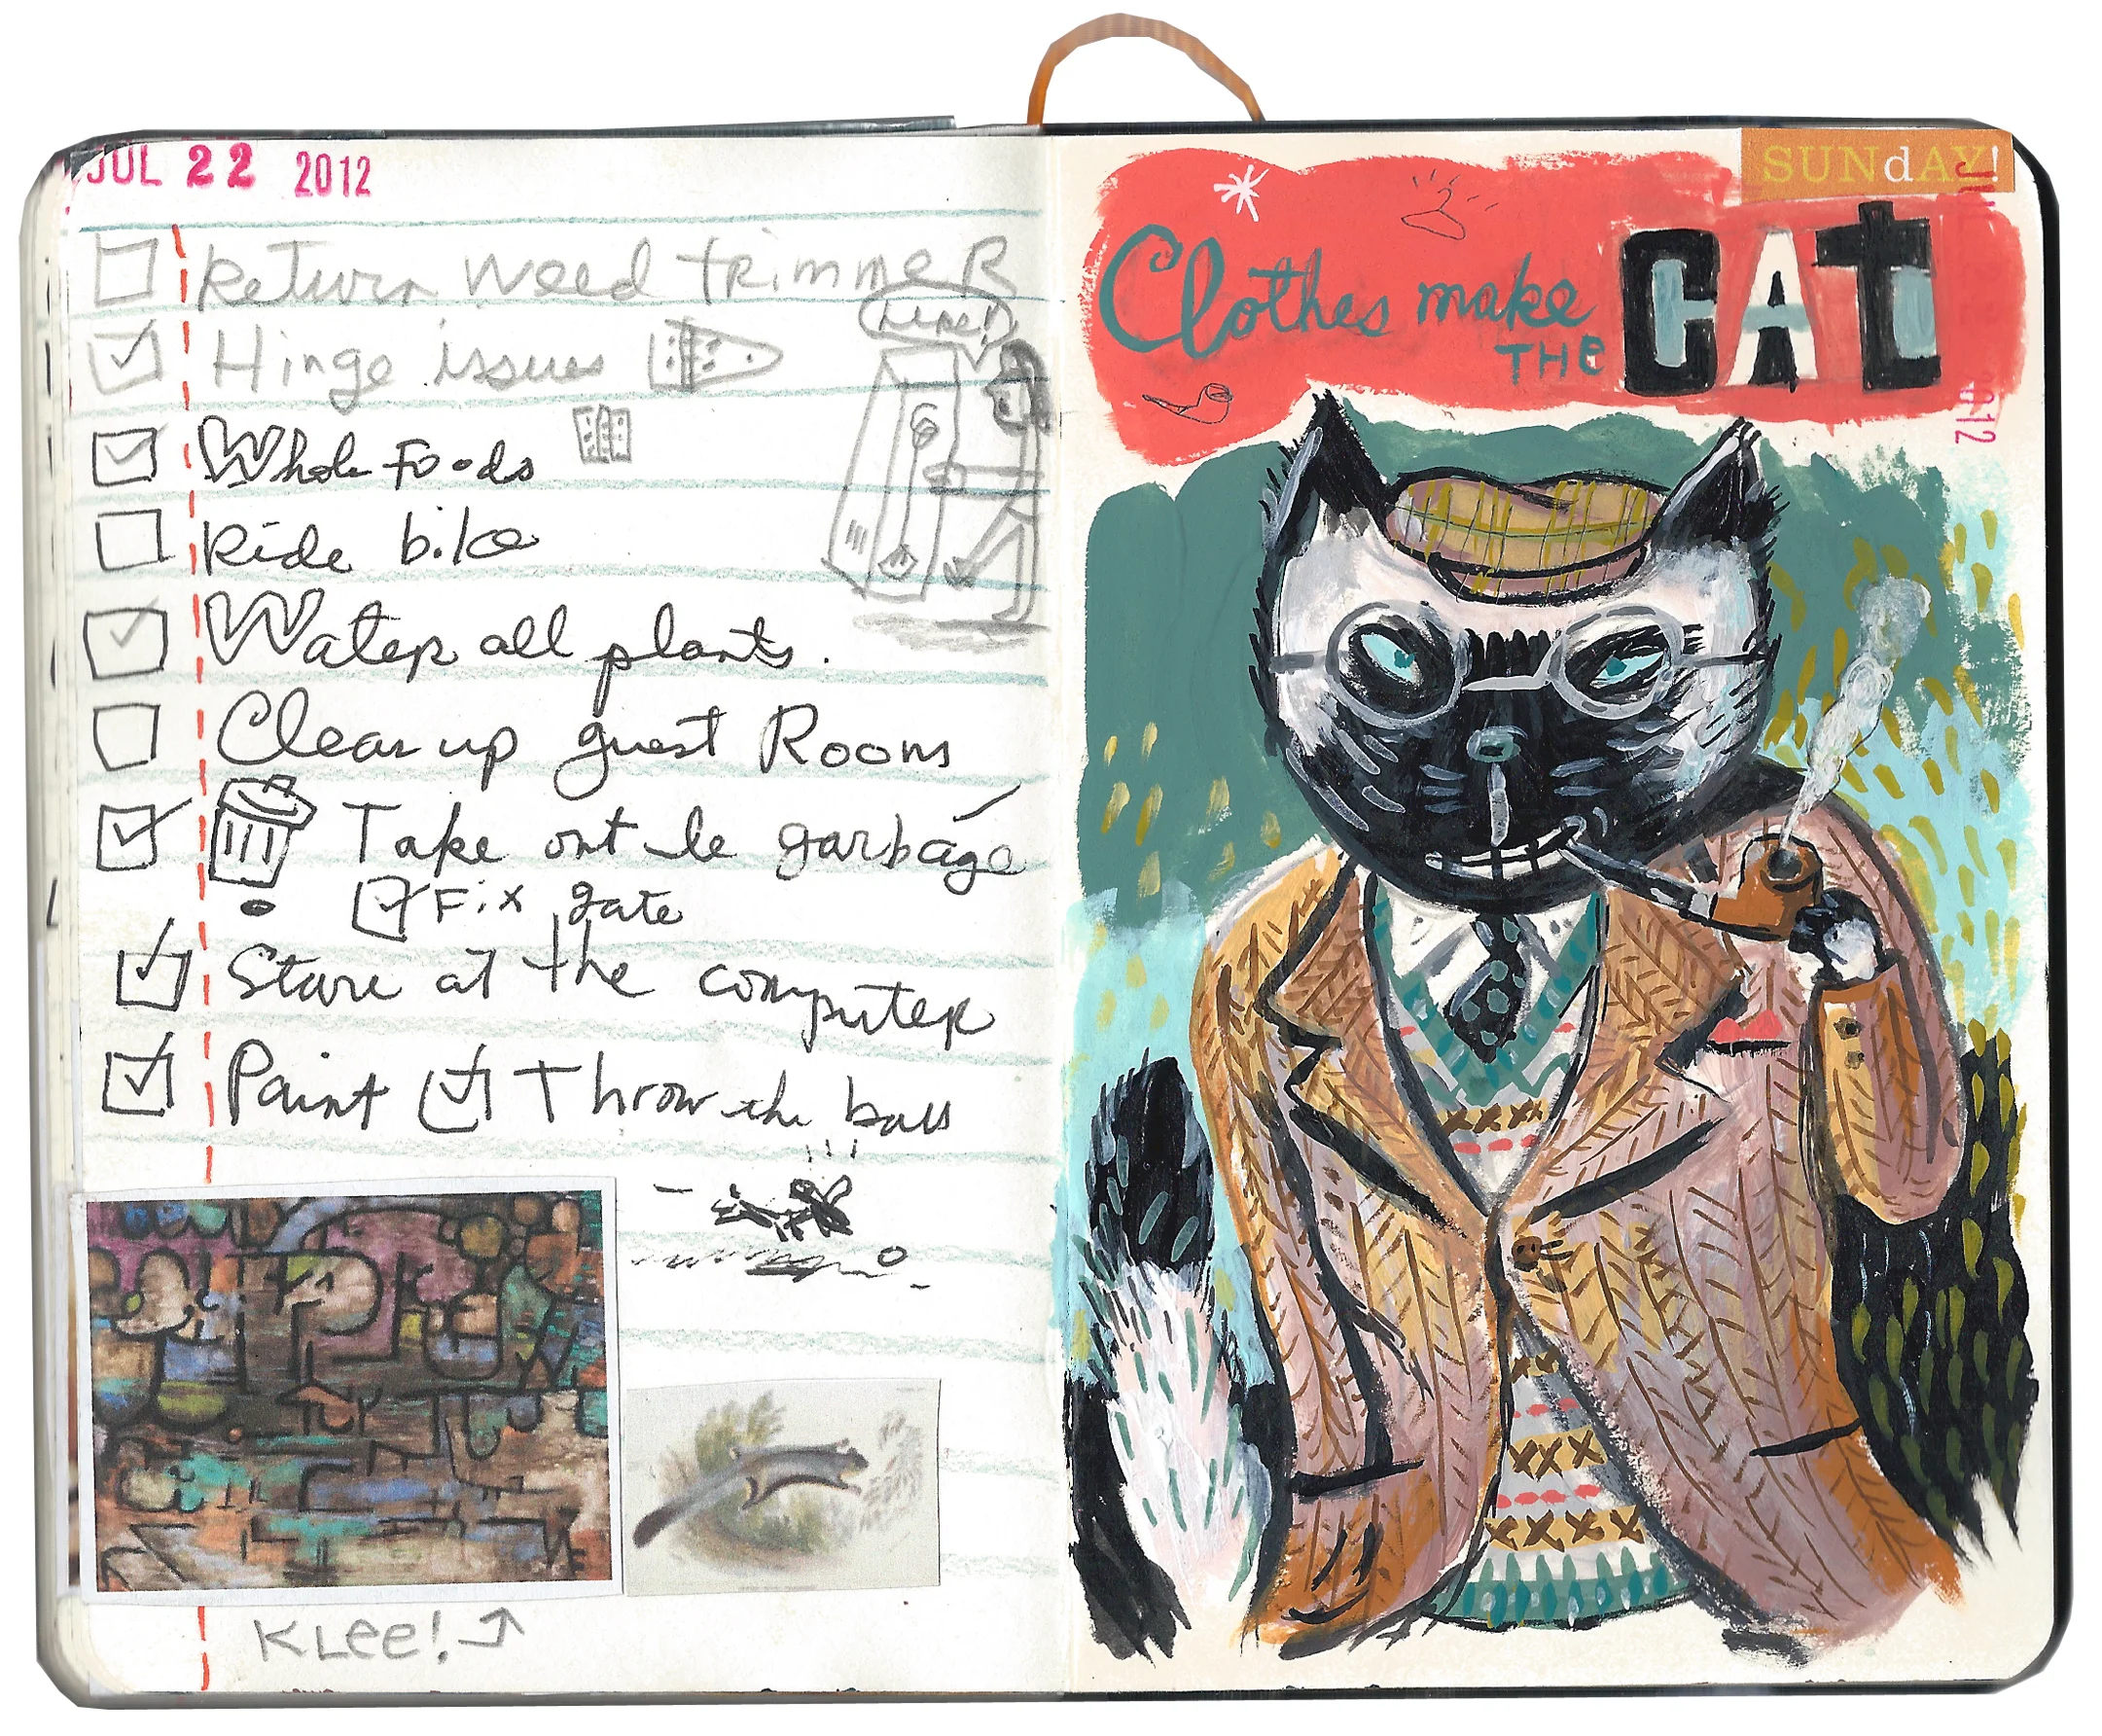 JUL 22 2012
Return weed trimmer
Hinge issues
Whole Foods
Ride bike
Water all plants.
Clean up guest Room
Take out le garbáge
Fix gate
Stare at the computer
Paint Throw the ball
KLee!
SUNdAY!
Clothes make
THe CAT
2012